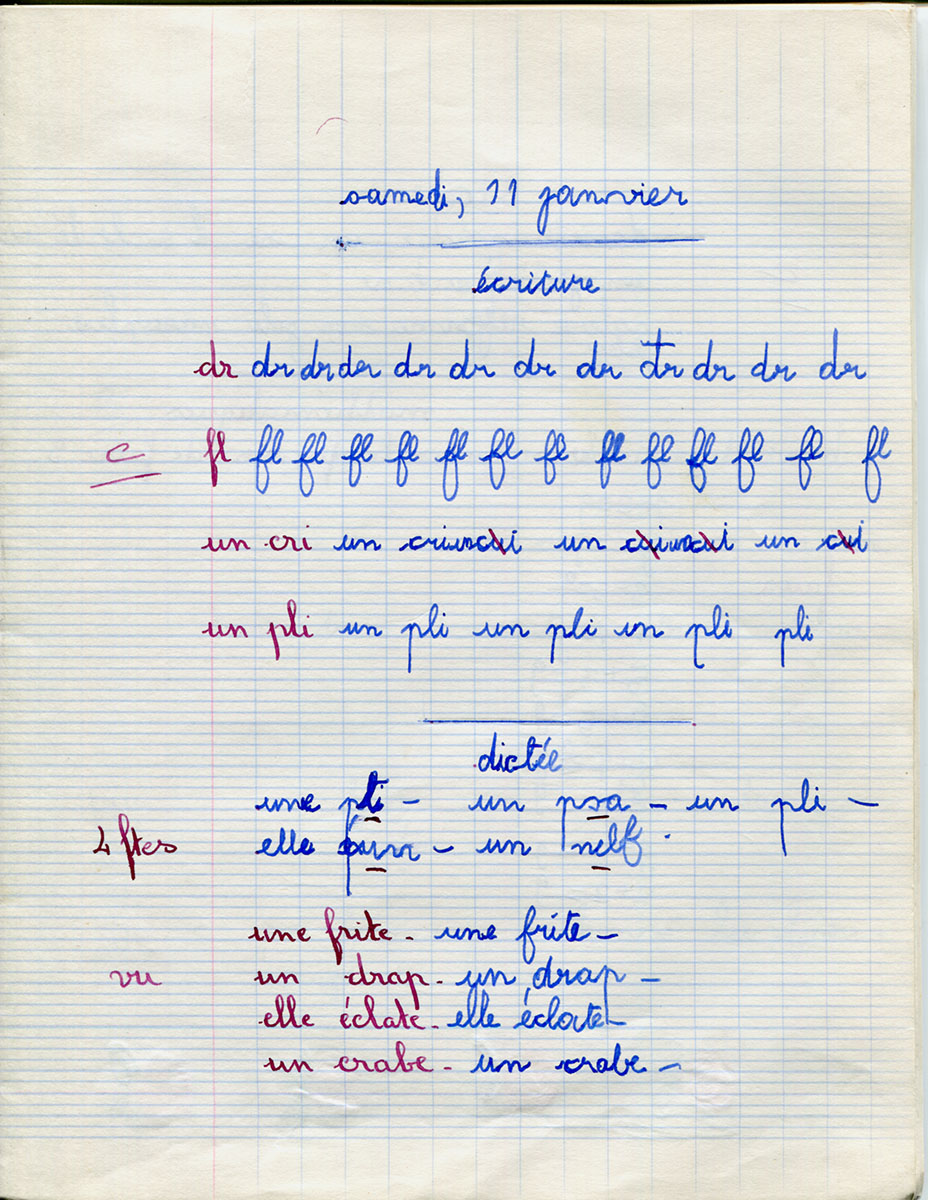 samedi, 11 janvier
écriture
dr dr dr dr dr dr dr dr dr dr dr dr
c fl fl fl fl fl fl fl fl fl fl fl fl fl fl
un cri un un un
un pli un pli un pli un pli pli
dictée
une pti – un psa – un pli –
4 ftes elle – un nelf
une frite - une frite –
vu un drap - un drap –
elle éclate - elle éclate –
un crabe - un crabe –